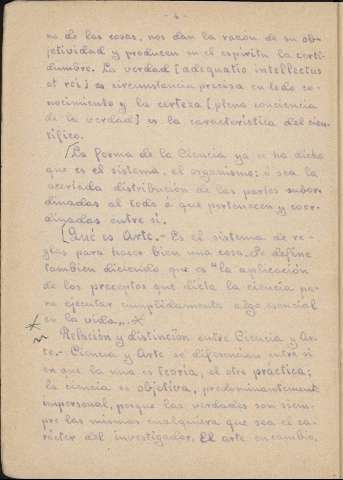 - 4 -
no de las cosas, nos dan la razon de su ob-
jetividad y producen en el espíritu la certi-
dumbre. La verdad [adequatio intellectus
et rei] es circunstancia precisa en todo co-
nocimiento y la certeza [plena conciencia
de la verdad] es la característica del cien-
tífico.
La forma de la Ciencia ya se ha dicho
que es el sistema, el organismo: ó sea la
acertada distribución de las partes subor-
dinadas al todo á que pertenecen y coor-
dinadas entre si.
¿Qué es Arte.- Es el sistema de re-
glas para hacer bien una cosa. Se define
tambien diciendo que es "la aplicación
de los preceptos que dicta la ciencia pa-
ra ejecutar cumplidamente algo esencial
en la vida".
Relación y distinción entre Ciencia y Ar-
te.- Ciencia y Arte se diferencian entre si
en que la una es teoría, el otro práctica;
la ciencia es objetiva, predominantemente
impersonal, porque las verdades son siem-
pre las mismas cualquiera que sea el ca-
rácter del investigador. El arte en cambio,